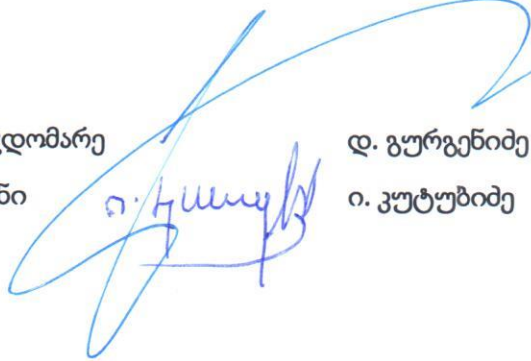 დომარე დ. გურგენიძე
ნი ი. კუტუბიძე